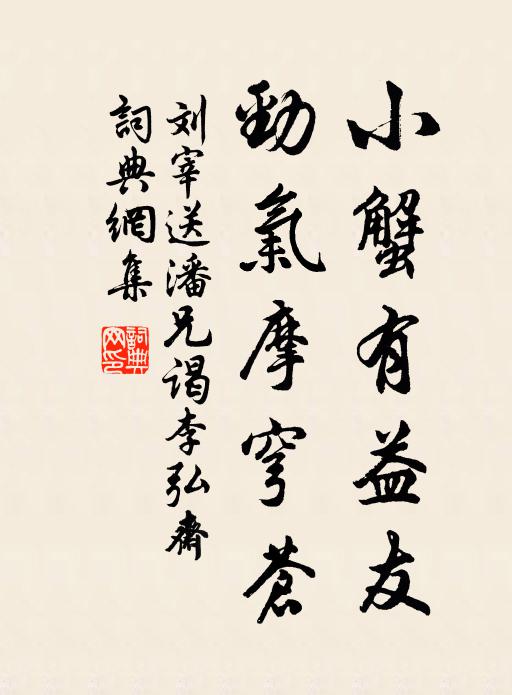 小蟹有益友
勁氣摩穹蒼
刘宰送潘兄谒李弘齋
詞典網集
詞典网印